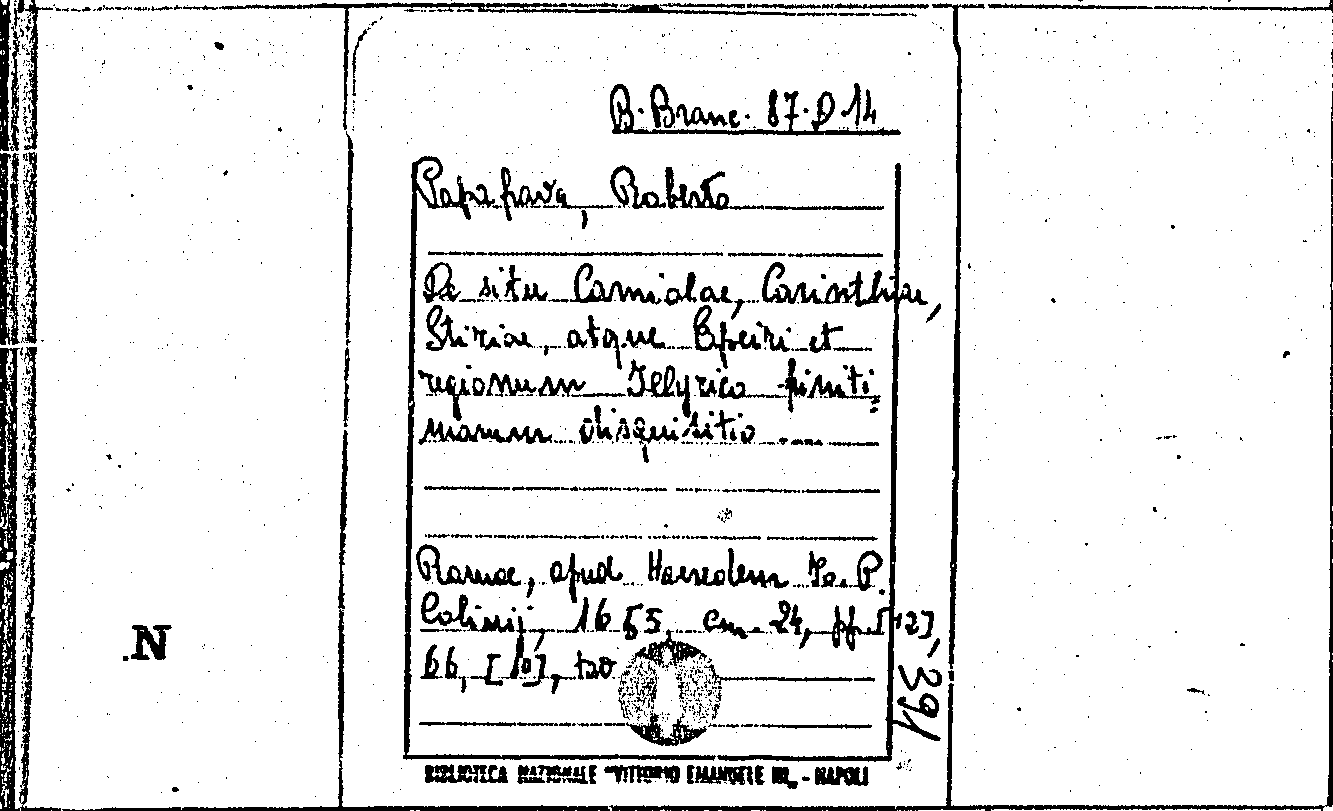 B. Branc. 87. D. 14
Papafava, Roberto
De situ Carniolae, Carinthiae,
Stiriae, atque Epeiri et
regionum Illyrico finiti=
marum disquisitio ....
Romae, apud Haeredem Io. P.
Colinij, 1655, cm. 24, pp. [12],
66, [10],
391
.N
BIBLIOTECA NAZIONALE "VITTORIO EMANUELE III" - NAPOLI